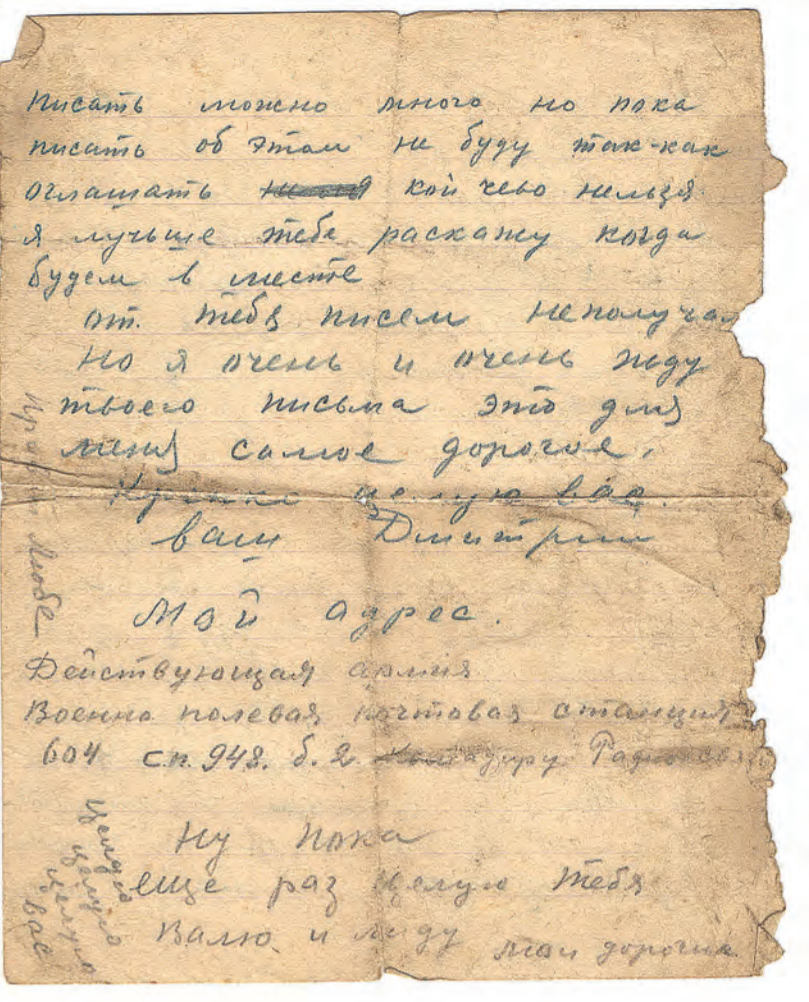 Писать можно много но пока
писать об этом не буду так-как
оглашать кой чево нельзя
я лучьше тебе раскажу когда
будем в месте
от. тебя писем неполучал
но я очень и очень жду
твоего письма это для
меня самое дорогое,
Крепко целую вас.
ваш Дмитрий
Мой адрес.
Действующая армия
Военно полевая почтовая станция
604 с.п. 948. б. 2
Ну пока
еще раз целую тебя
Валю и лиду мои дорогие
Любе
целую
целую
целую
вас